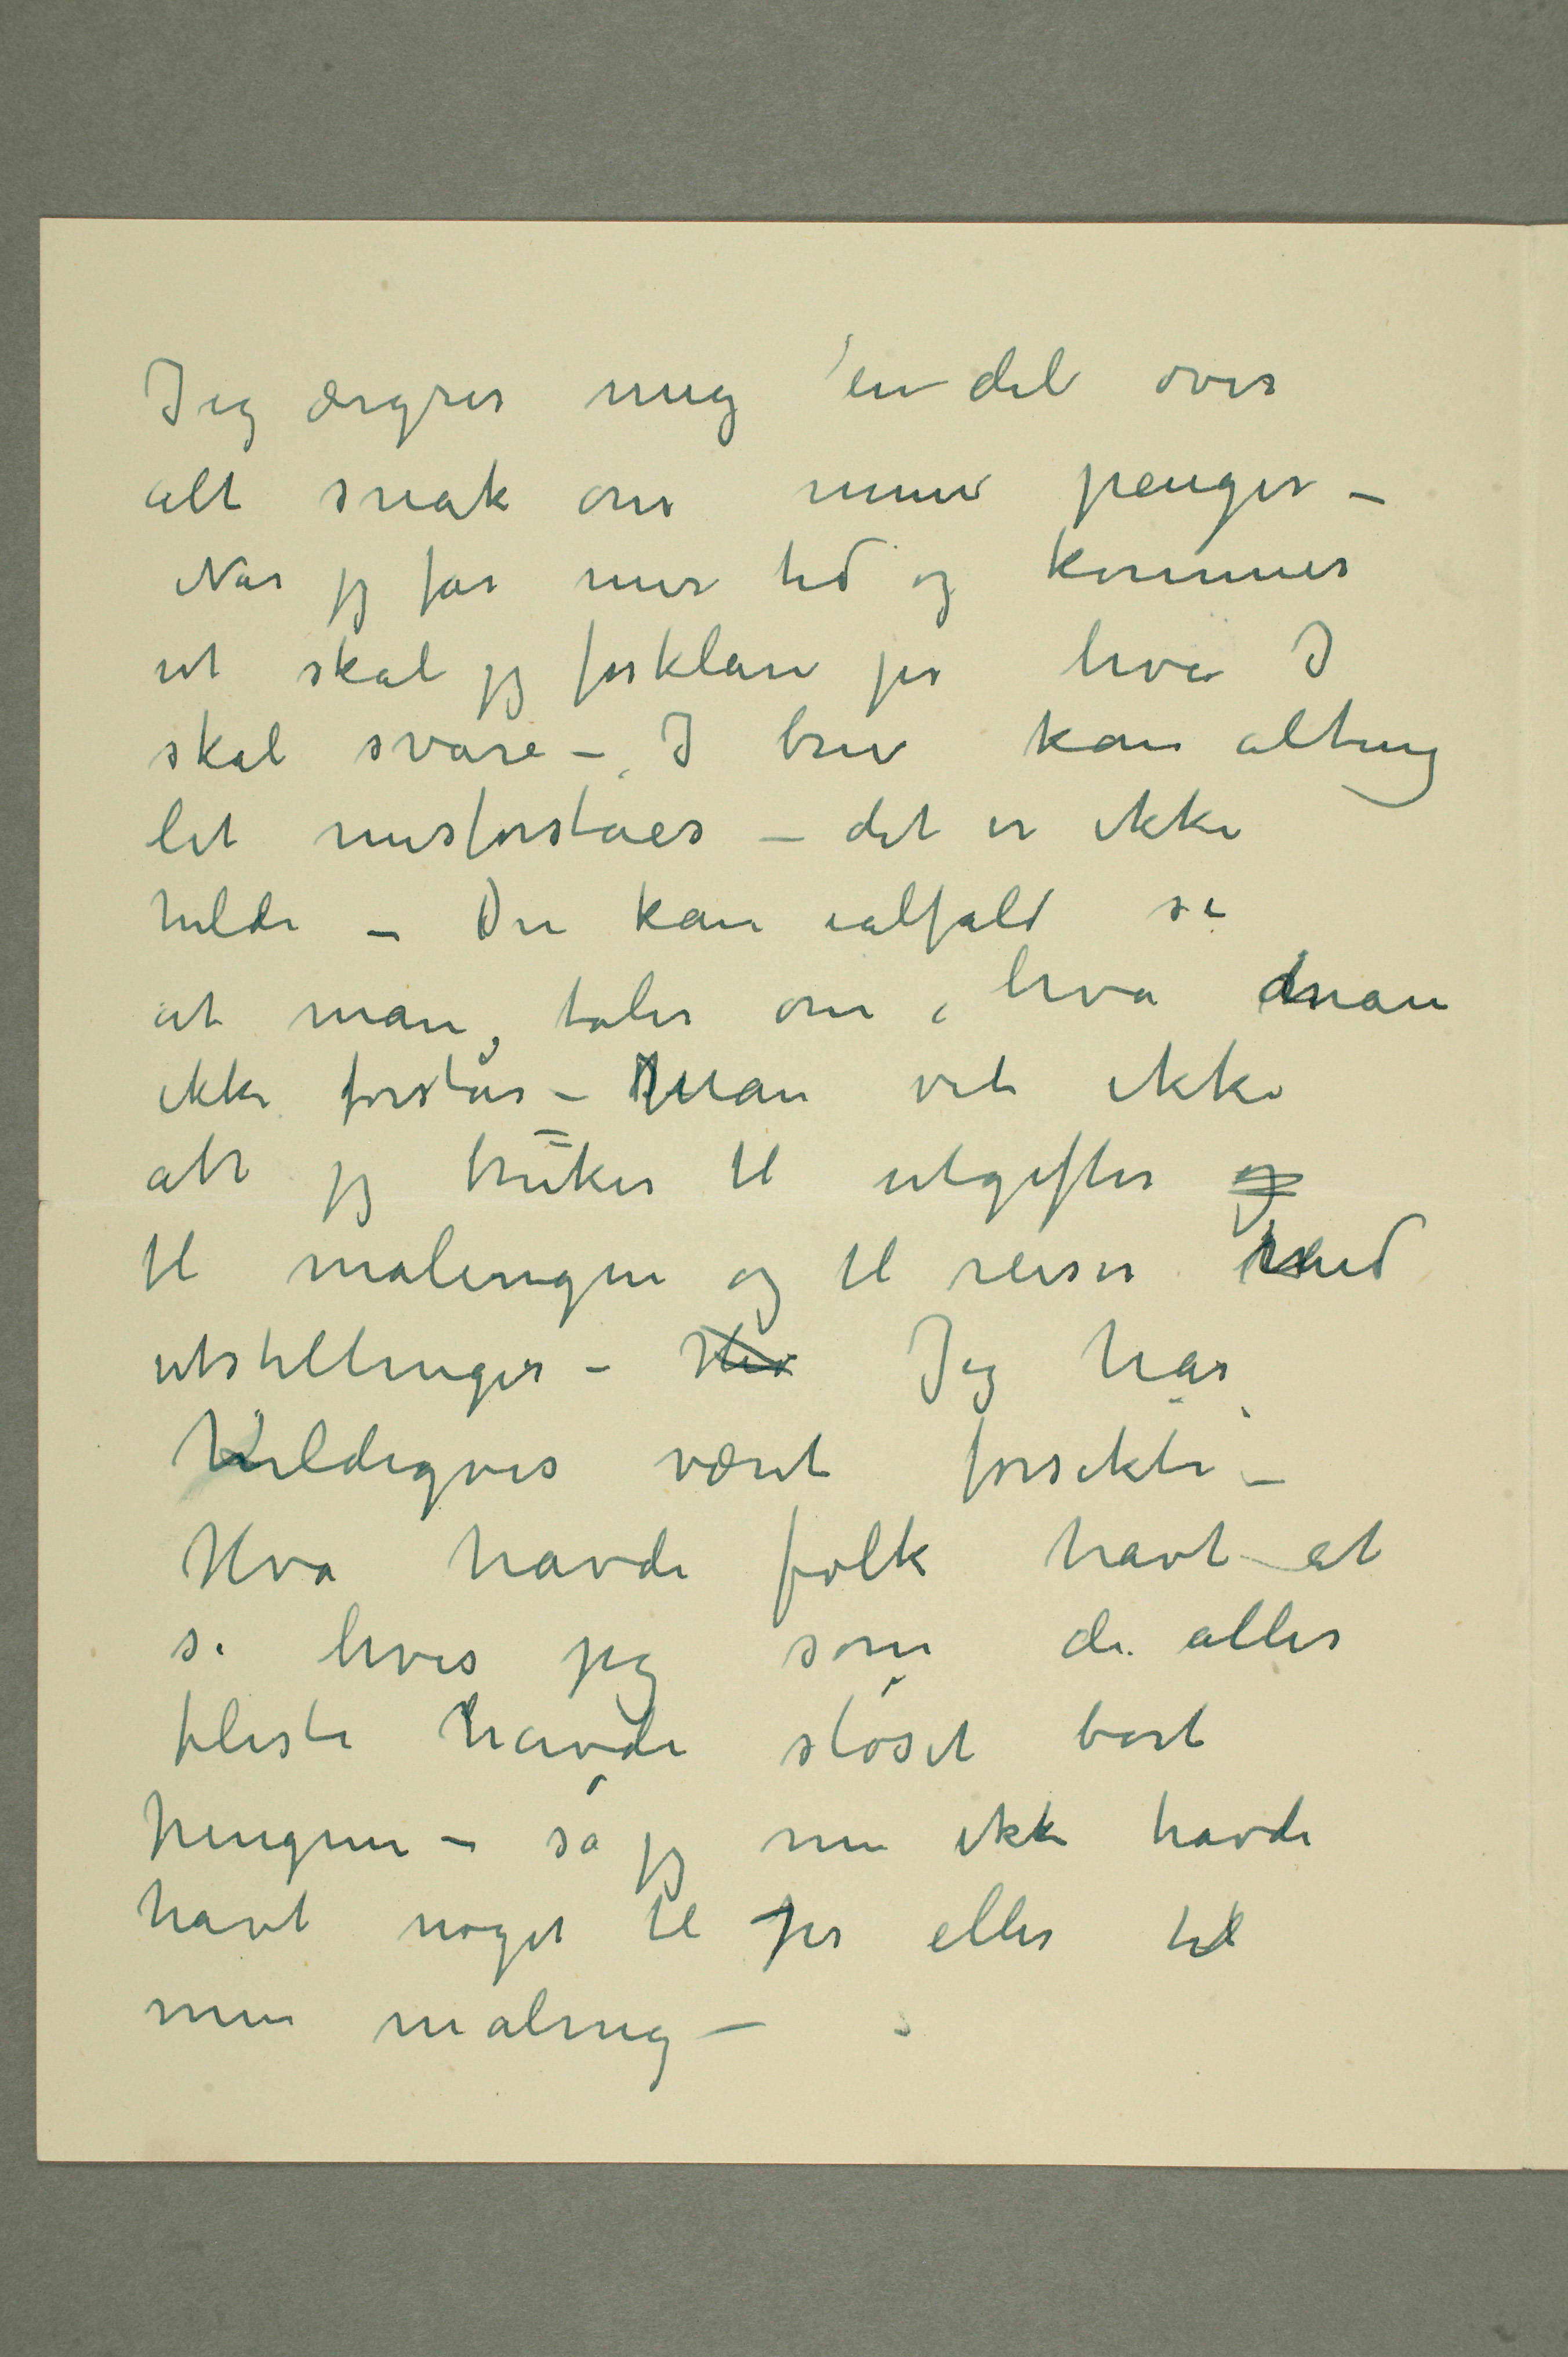 Jeg ærgrer mig en del over
alt snak om mine penger –
Når jeg får mer tid og kommer
ut skal jeg forklare jer hva I
skal svare – I brev kan alting
let misforståes – det er ikke
heldi – Du kan ialfald si
at man taler om hva man
ikke forstår – Man vet ikke
alt jeg bruker til utgifter og
til malingen og til reiser med
utstillinger – Hva Jeg har
heldigvis været forsikti –
Hva havde folk havt at
si hvis jeg som de aller
fleste havde sløset bort
pengene – så jeg nu ikke havde
havt noget til Jer eller til
min maling –